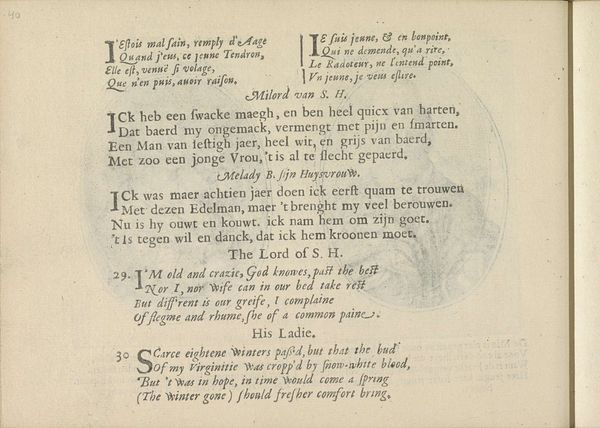 40
I'Estois mal sain, remply d'Aage
Quand j'eus, ce jeune Tendron,
Elle est, venuë si volage,
Que n'en puis, avoir raison.
IE suis jeune, & en bonpoint,
Qui ne demende, qu'a rire,
Le Radoteur, ne l'entend point,
Vn jeune, je veus eslire.
Milord van S. H.
ICk heb een swacke maegh, en ben heel quicx van harten,
Dat baerd my ongemack, vermengt met pijn en smarten.
Een Man van sestigh jaer, heel wit, en grijs van baerd,
Met zoo een jonge Vrou, 't is al te slecht gepaerd.
Melady B. sijn Huysvrouw.
ICk was maer achtien jaer doen ick eerst quam te trouwen
Met dezen Edelman, maer 't brenght my veel berouwen.
Nu is hy ouwt en kouwt. ick nam hem om zijn goet.
't Is tegen wil en danck, dat ick hem kroonen moet.
The Lord of S. H.
29. I'M old and crazie, God knowes, past the best
Nor I, nor wife can in our bed take rest
But diff'rent is our greife, I complaine
Of flegme and rhume, she of a common paine.
His Ladie.
30 SCarce eightene winters pass'd, but that the bud
Of my Virginitie was cropp'd by snow-white blood,
But 't was in hope, in time would come a spring
(The winter gone) should fresher comfort bring.